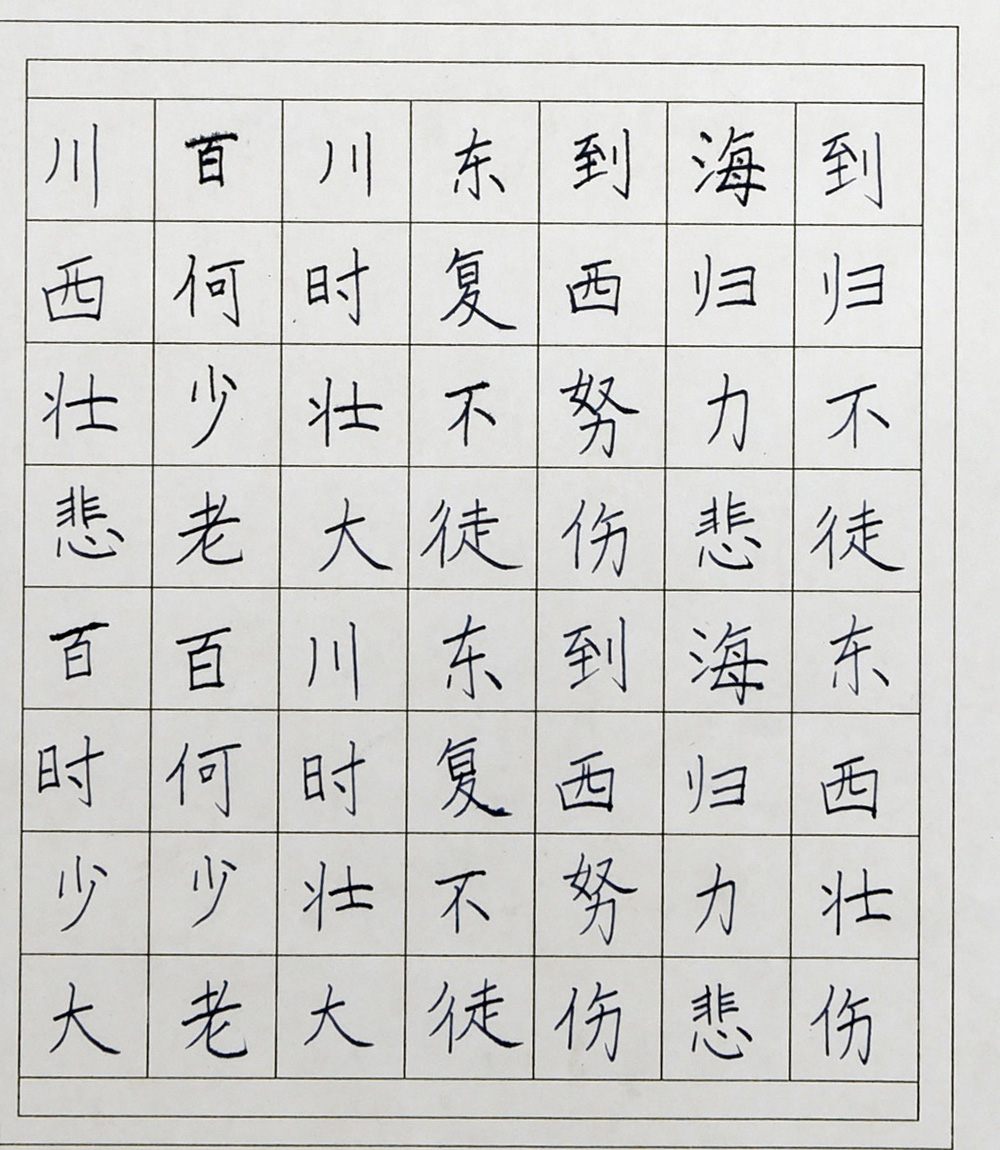 川百川东到海到
西何时复西归归
壮少壮不努力不
悲老大徒伤悲徒
百百川东到海东
时何时复西归西
少少壮不努力壮
大老大徒伤悲伤